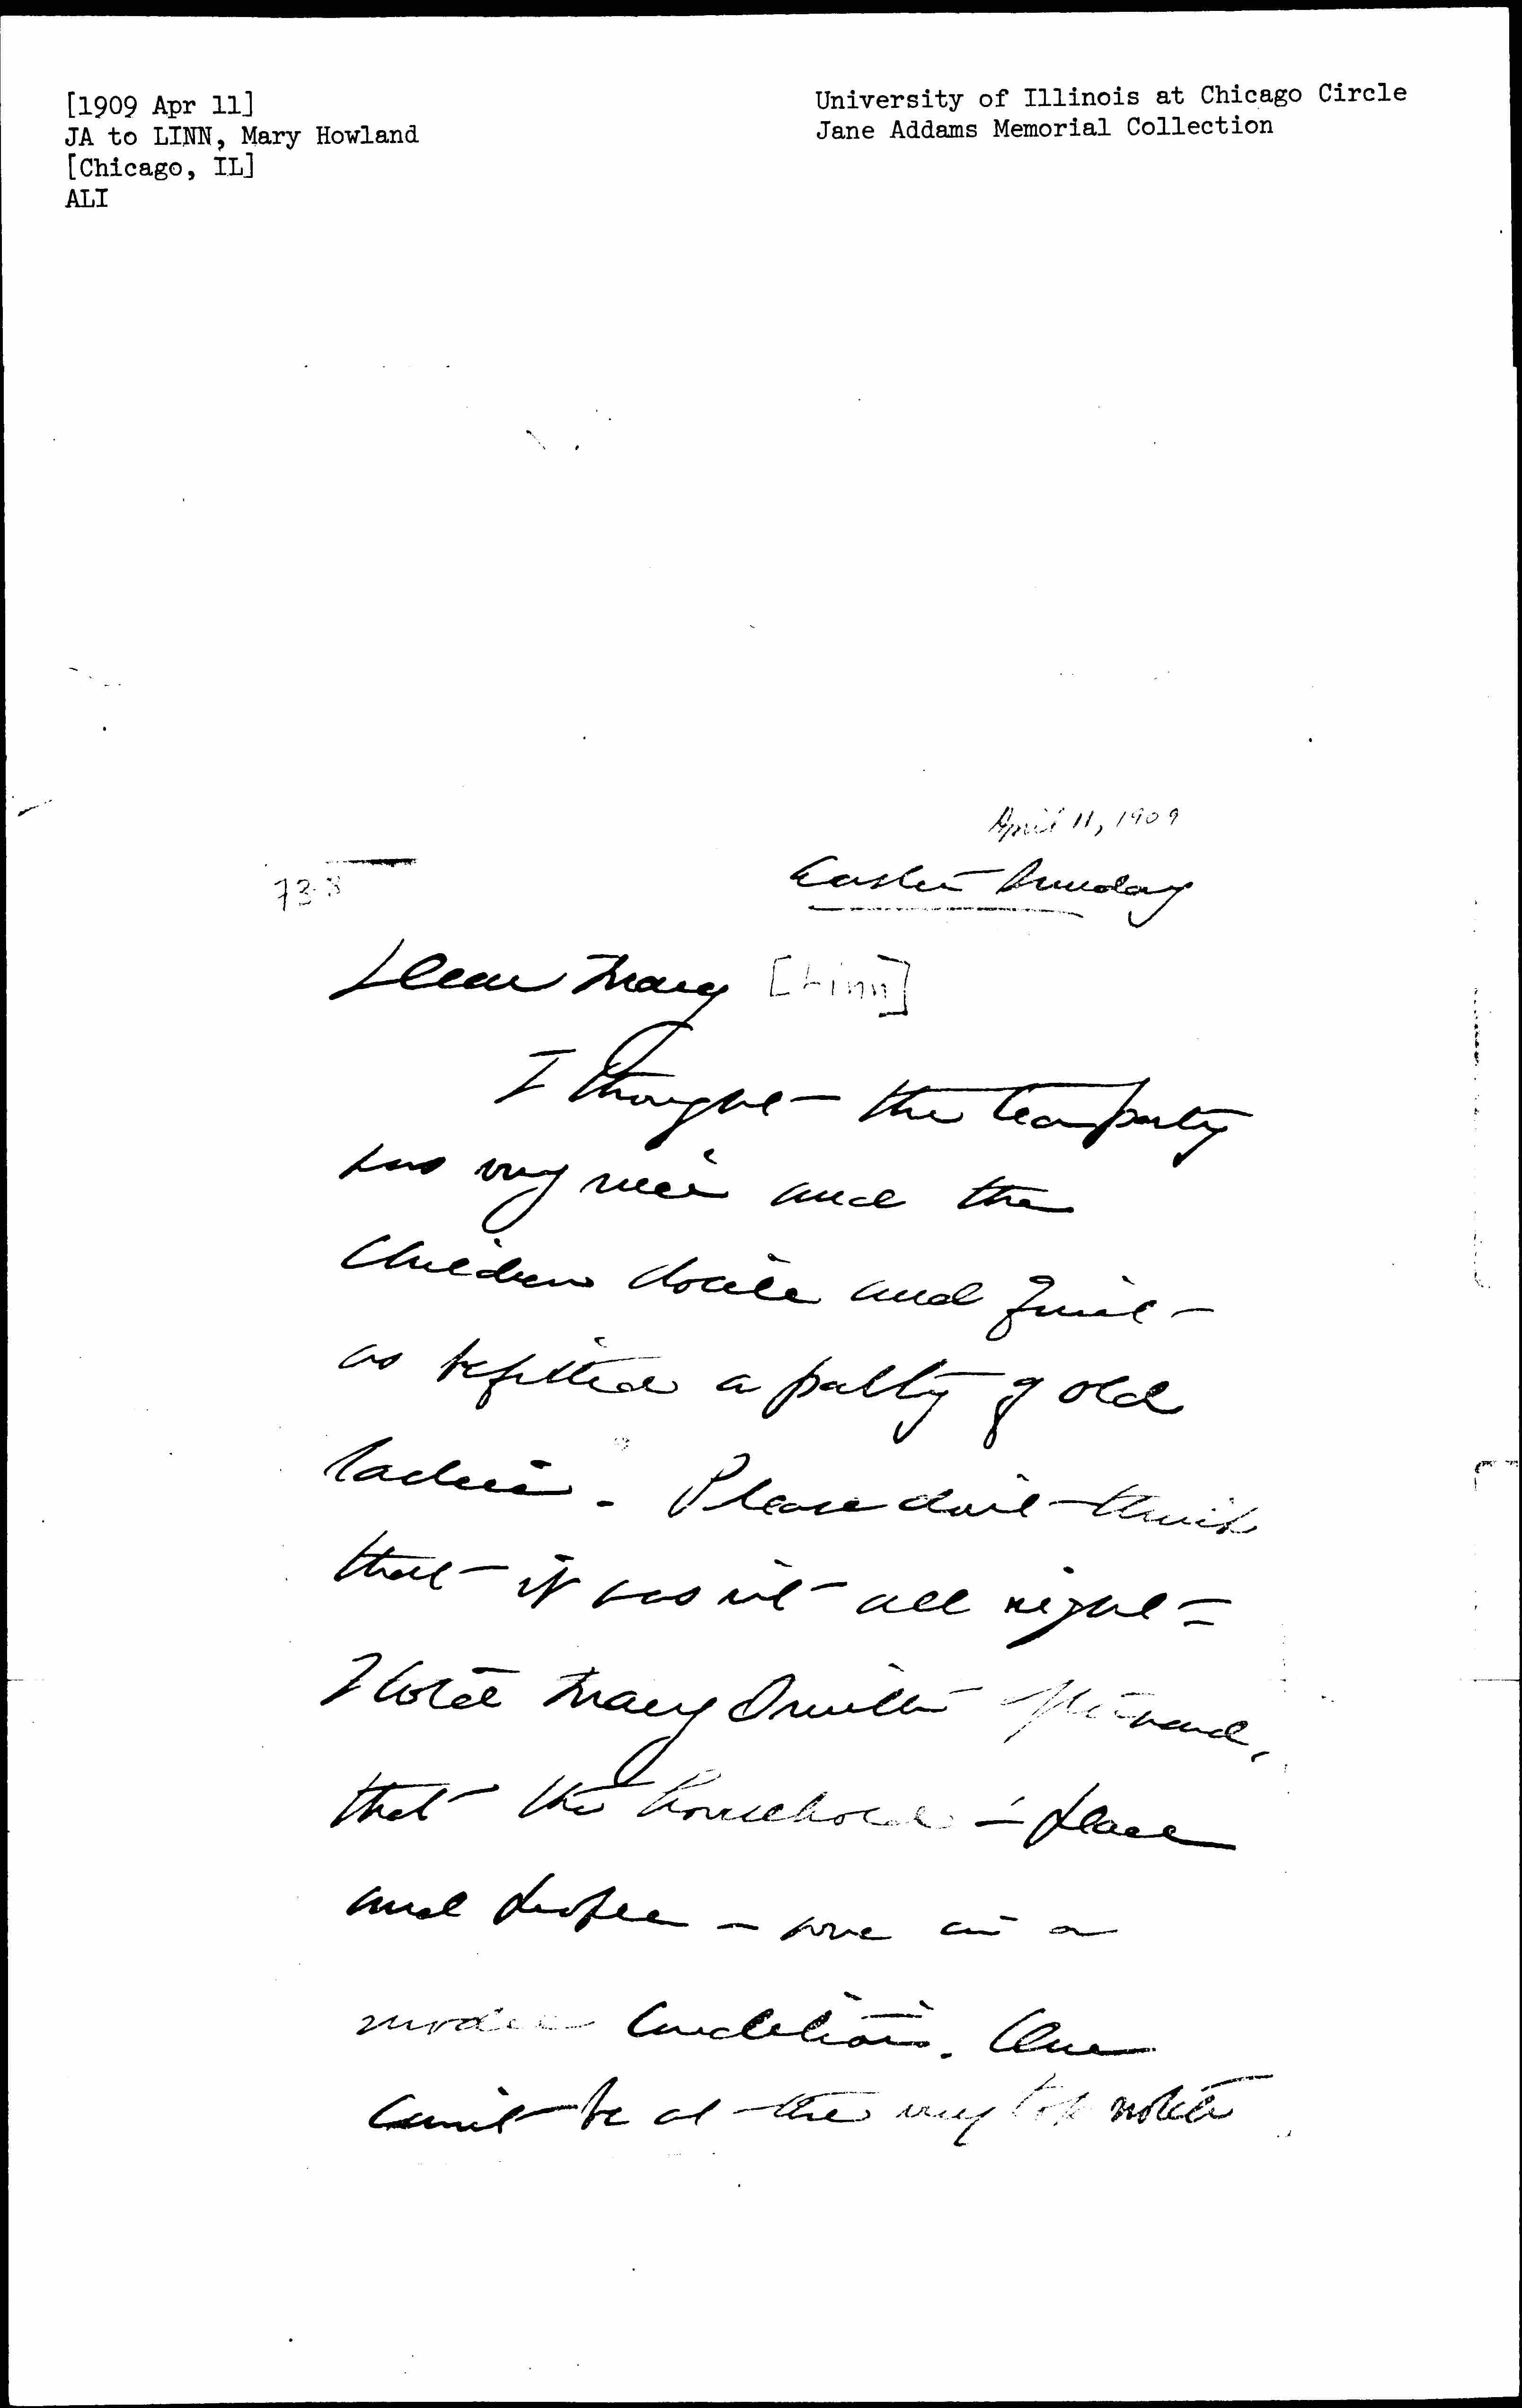 [1909 Apr 11]
JA to LINN, Mary Howland
[Chicago, IL]
ALI
University of Illinois at Chicago Circle
Jane Addams Memorial Collection
April 11, 1909
Easter Sunday
73.8
Dear Mary [Linn]
I thought the tea party
was very nice and the
children docile and quiet
as befitted a party of old
ladies. Please don't think
that it was not all right =
I told Mary Smith afterward,
that the household - place
and people - were in a
model condition. One
can't be at the very top notch